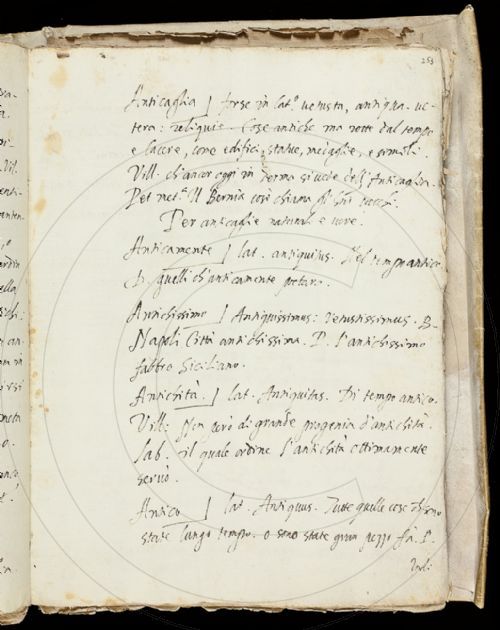 253
Anticaglia] forse in lat.º vetusta, antiqua. ve-
tera: reliquie. Cose antiche ma rotte dal tempo
e lacere, come edifici, statue, medaglie, e simili.
Vill. ch'ancor oggi in Fermo si vede dell'Anticaglia.
Per met.ª Il Bernia così chiama gli
Per anticaglie naturali e vere.
Anticamente] lat. antiquitus. Nel tempo antico
D. quelli ch'anticamente poetaro.
Antichissimo] Antiquissimus: Vetustissimus. B.
Napoli Città antichissima. P. l'antichissimo
fabbro Siciliano.
Antichità.] lat. Antiquitas. Di tempo antico.
Vill: però di grande progenia d'antichità.
Sab. il quale ordine l'antichità ottimamente
servò.
Antico] lat. Antiquus. Tutte quelle cose che sono
state lungo tempo. o sono state gran pezzo fà. P.